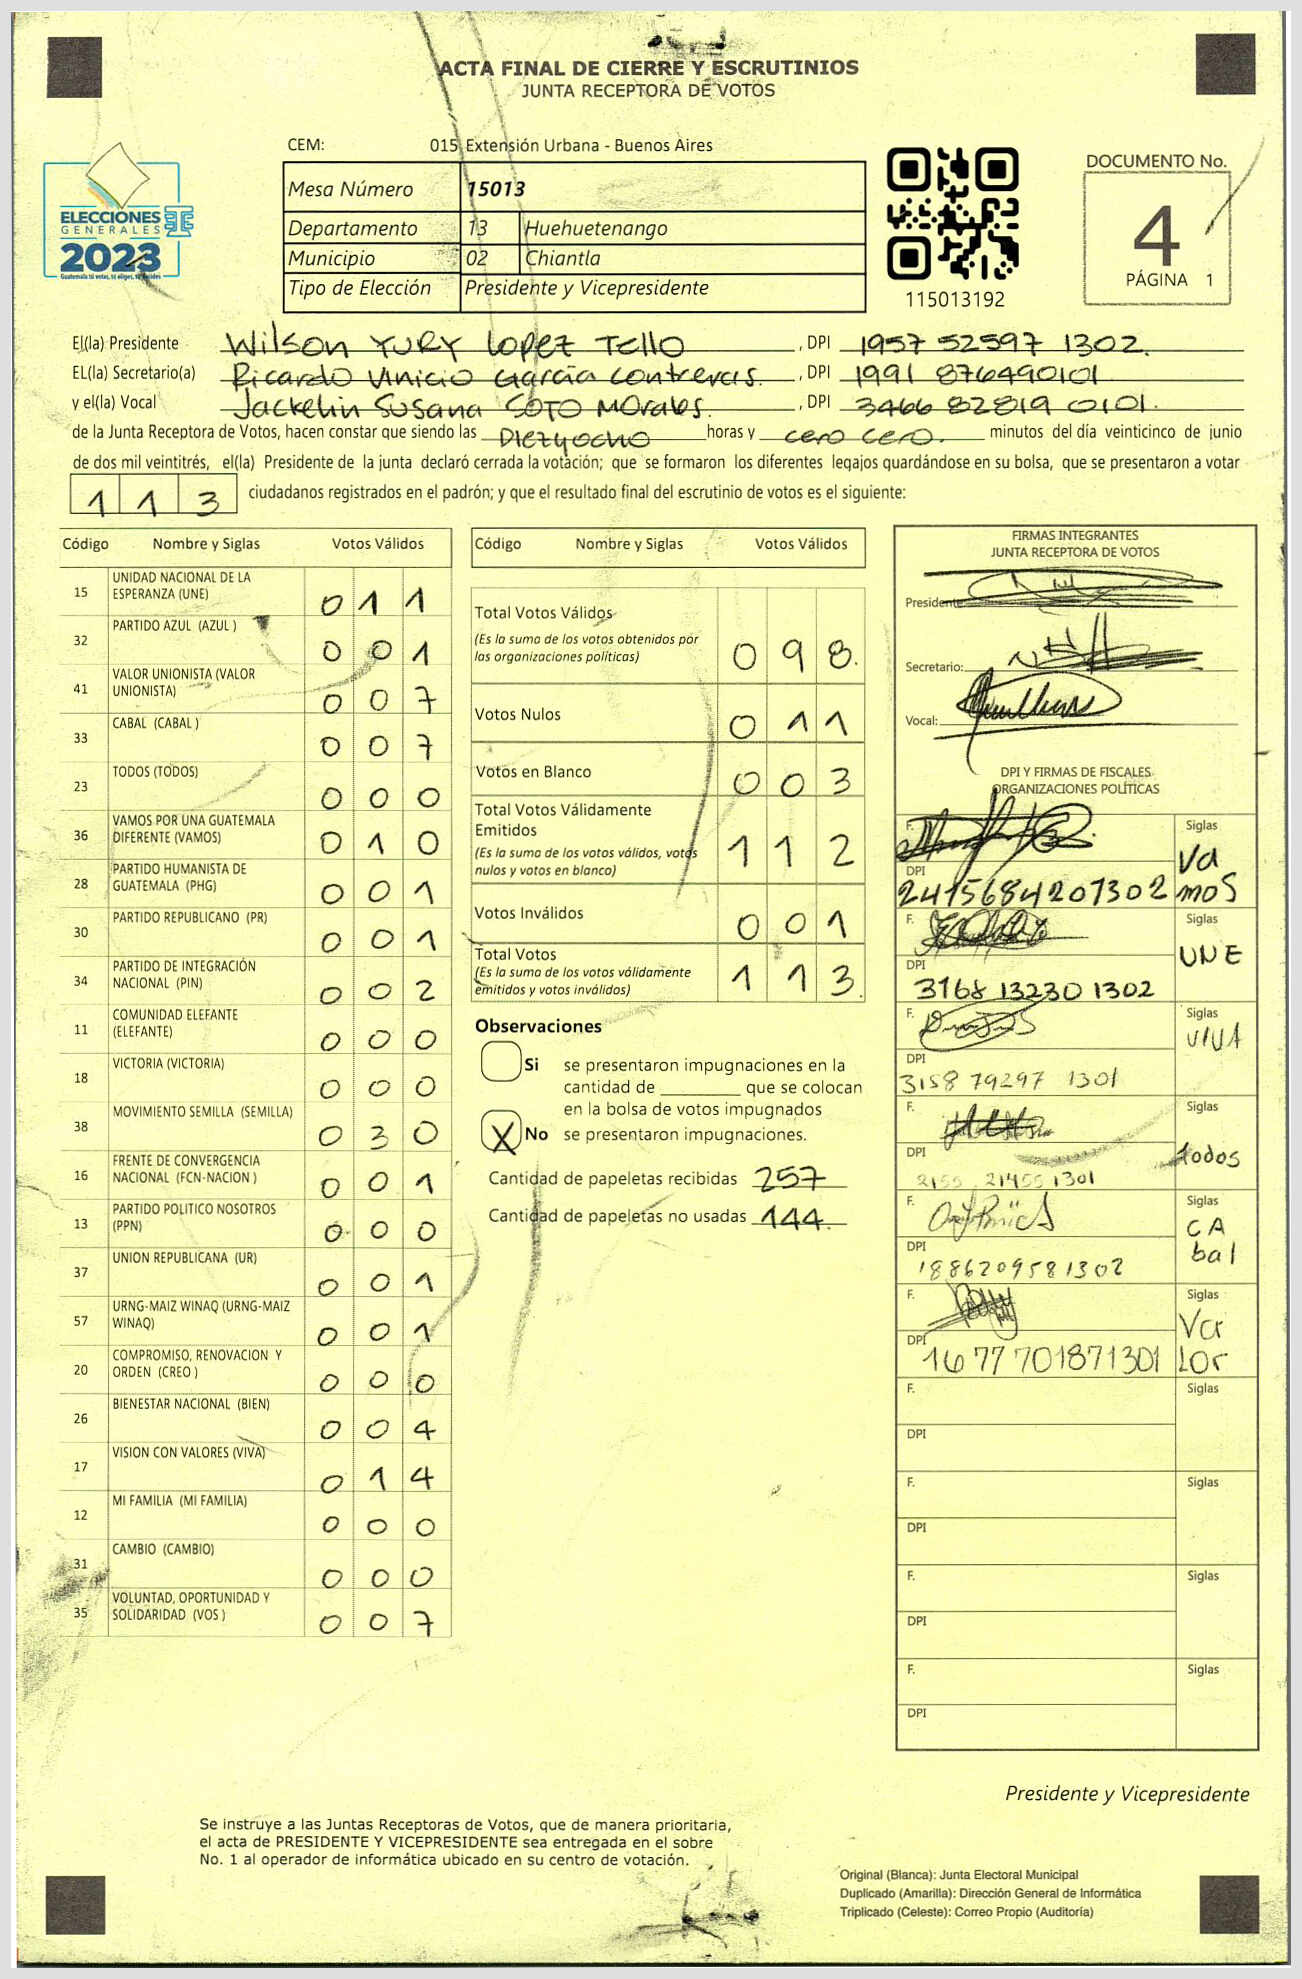 ACTA FINAL DE CIERRE Y ESCRUTINIOS
JUNTA RECEPTORA DE VOTOS
CEM: 015 Extensión Urbana - Buenos Aires
Mesa Número 15013
Departamento 13 Huehuetenango
Municipio 02 Chiantla
Tipo de Elección Presidente y Vicepresidente
ELECCIONES
GENERALES
2023
115013192
DOCUMENTO No.
4
PÁGINA 1
El(la) Presidente Wilson YURY Lopez Tello, DPI 1957 52597 1302.
EL(la) Secretario(a) Ricardo Vinicio García Contreras., DPI 1991 876490101
y el(la) Vocal Jackelin Susana SOTO Morales., DPI 3466 82819 0101.
de la Junta Receptora de Votos, hacen constar que siendo las Diezyocho horas y cero cero. minutos del día veinticinco de junio
de dos mil veintitrés, el(la) Presidente de la junta declaró cerrada la votación; que se formaron los diferentes legajos guardándose en su bolsa, que se presentaron a votar
113 ciudadanos registrados en el padrón; y que el resultado final del escrutinio de votos es el siguiente:
Código Nombre y Siglas Votos Válidos
15 UNIDAD NACIONAL DE LA ESPERANZA (UNE) 0 1 1
32 PARTIDO AZUL (AZUL ) 0 0 1
41 VALOR UNIONISTA (VALOR UNIONISTA) 0 0 7
33 CABAL (CABAL ) 0 0 7
23 TODOS (TODOS) 0 0 0
36 VAMOS POR UNA GUATEMALA DIFERENTE (VAMOS) 0 1 0
28 PARTIDO HUMANISTA DE GUATEMALA (PHG) 0 0 1
30 PARTIDO REPUBLICANO (PR) 0 0 1
34 PARTIDO DE INTEGRACIÓN NACIONAL (PIN) 0 0 2
11 COMUNIDAD ELEFANTE (ELEFANTE) 0 0 0
18 VICTORIA (VICTORIA) 0 0 0
38 MOVIMIENTO SEMILLA (SEMILLA) 0 3 0
16 FRENTE DE CONVERGENCIA NACIONAL (FCN-NACION ) 0 0 1
13 PARTIDO POLITICO NOSOTROS (PPN) 0 0 0
37 UNION REPUBLICANA (UR) 0 0 1
57 URNG-MAIZ WINAQ (URNG-MAIZ WINAQ) 0 0 1
20 COMPROMISO, RENOVACION Y ORDEN (CREO ) 0 0 0
26 BIENESTAR NACIONAL (BIEN) 0 0 4
17 VISION CON VALORES (VIVA) 0 1 4
12 MI FAMILIA (MI FAMILIA) 0 0 0
31 CAMBIO (CAMBIO) 0 0 0
35 VOLUNTAD, OPORTUNIDAD Y SOLIDARIDAD (VOS ) 0 0 7
Código Nombre y Siglas Votos Válidos
Total Votos Válidos 0 9 8.
(Es la suma de los votos obtenidos por
las organizaciones políticas)
Votos Nulos 0 1 1
Votos en Blanco 0 0 3
Total Votos Válidamente
Emitidos 1 1 2
(Es la suma de los votos válidos, votos
nulos y votos en blanco)
Votos Inválidos 0 0 1
Total Votos 1 1 3.
(Es la suma de los votos válidamente
emitidos y votos inválidos)
Observaciones
Si se presentaron impugnaciones en la
cantidad de ________ que se colocan
en la bolsa de votos impugnados
X No se presentaron impugnaciones.
Cantidad de papeletas recibidas 257
Cantidad de papeletas no usadas 144.
FIRMAS INTEGRANTES
JUNTA RECEPTORA DE VOTOS
Presidente
Secretario:
Vocal:
DPI Y FIRMAS DE FISCALES
ORGANIZACIONES POLÍTICAS
F. Siglas
Vamos
DPI 2415684201302
F. Siglas
UNE
DPI 3168 13230 1302
F. Siglas
VIVA
DPI 3158 79297 1301
F. Siglas
todos
DPI 1301
F. Siglas
CAbal
DPI 1886209581302
F. Siglas
Valor
DPI 1677 701871301
F. Siglas
DPI
F. Siglas
DPI
F. Siglas
DPI
F. Siglas
DPI
Presidente y Vicepresidente
Se instruye a las Juntas Receptoras de Votos, que de manera prioritaria,
el acta de PRESIDENTE Y VICEPRESIDENTE sea entregada en el sobre
No. 1 al operador de informática ubicado en su centro de votación.
Original (Blanca): Junta Electoral Municipal
Duplicado (Amarilla): Dirección General de Informática
Triplicado (Celeste): Correo Propio (Auditoría)